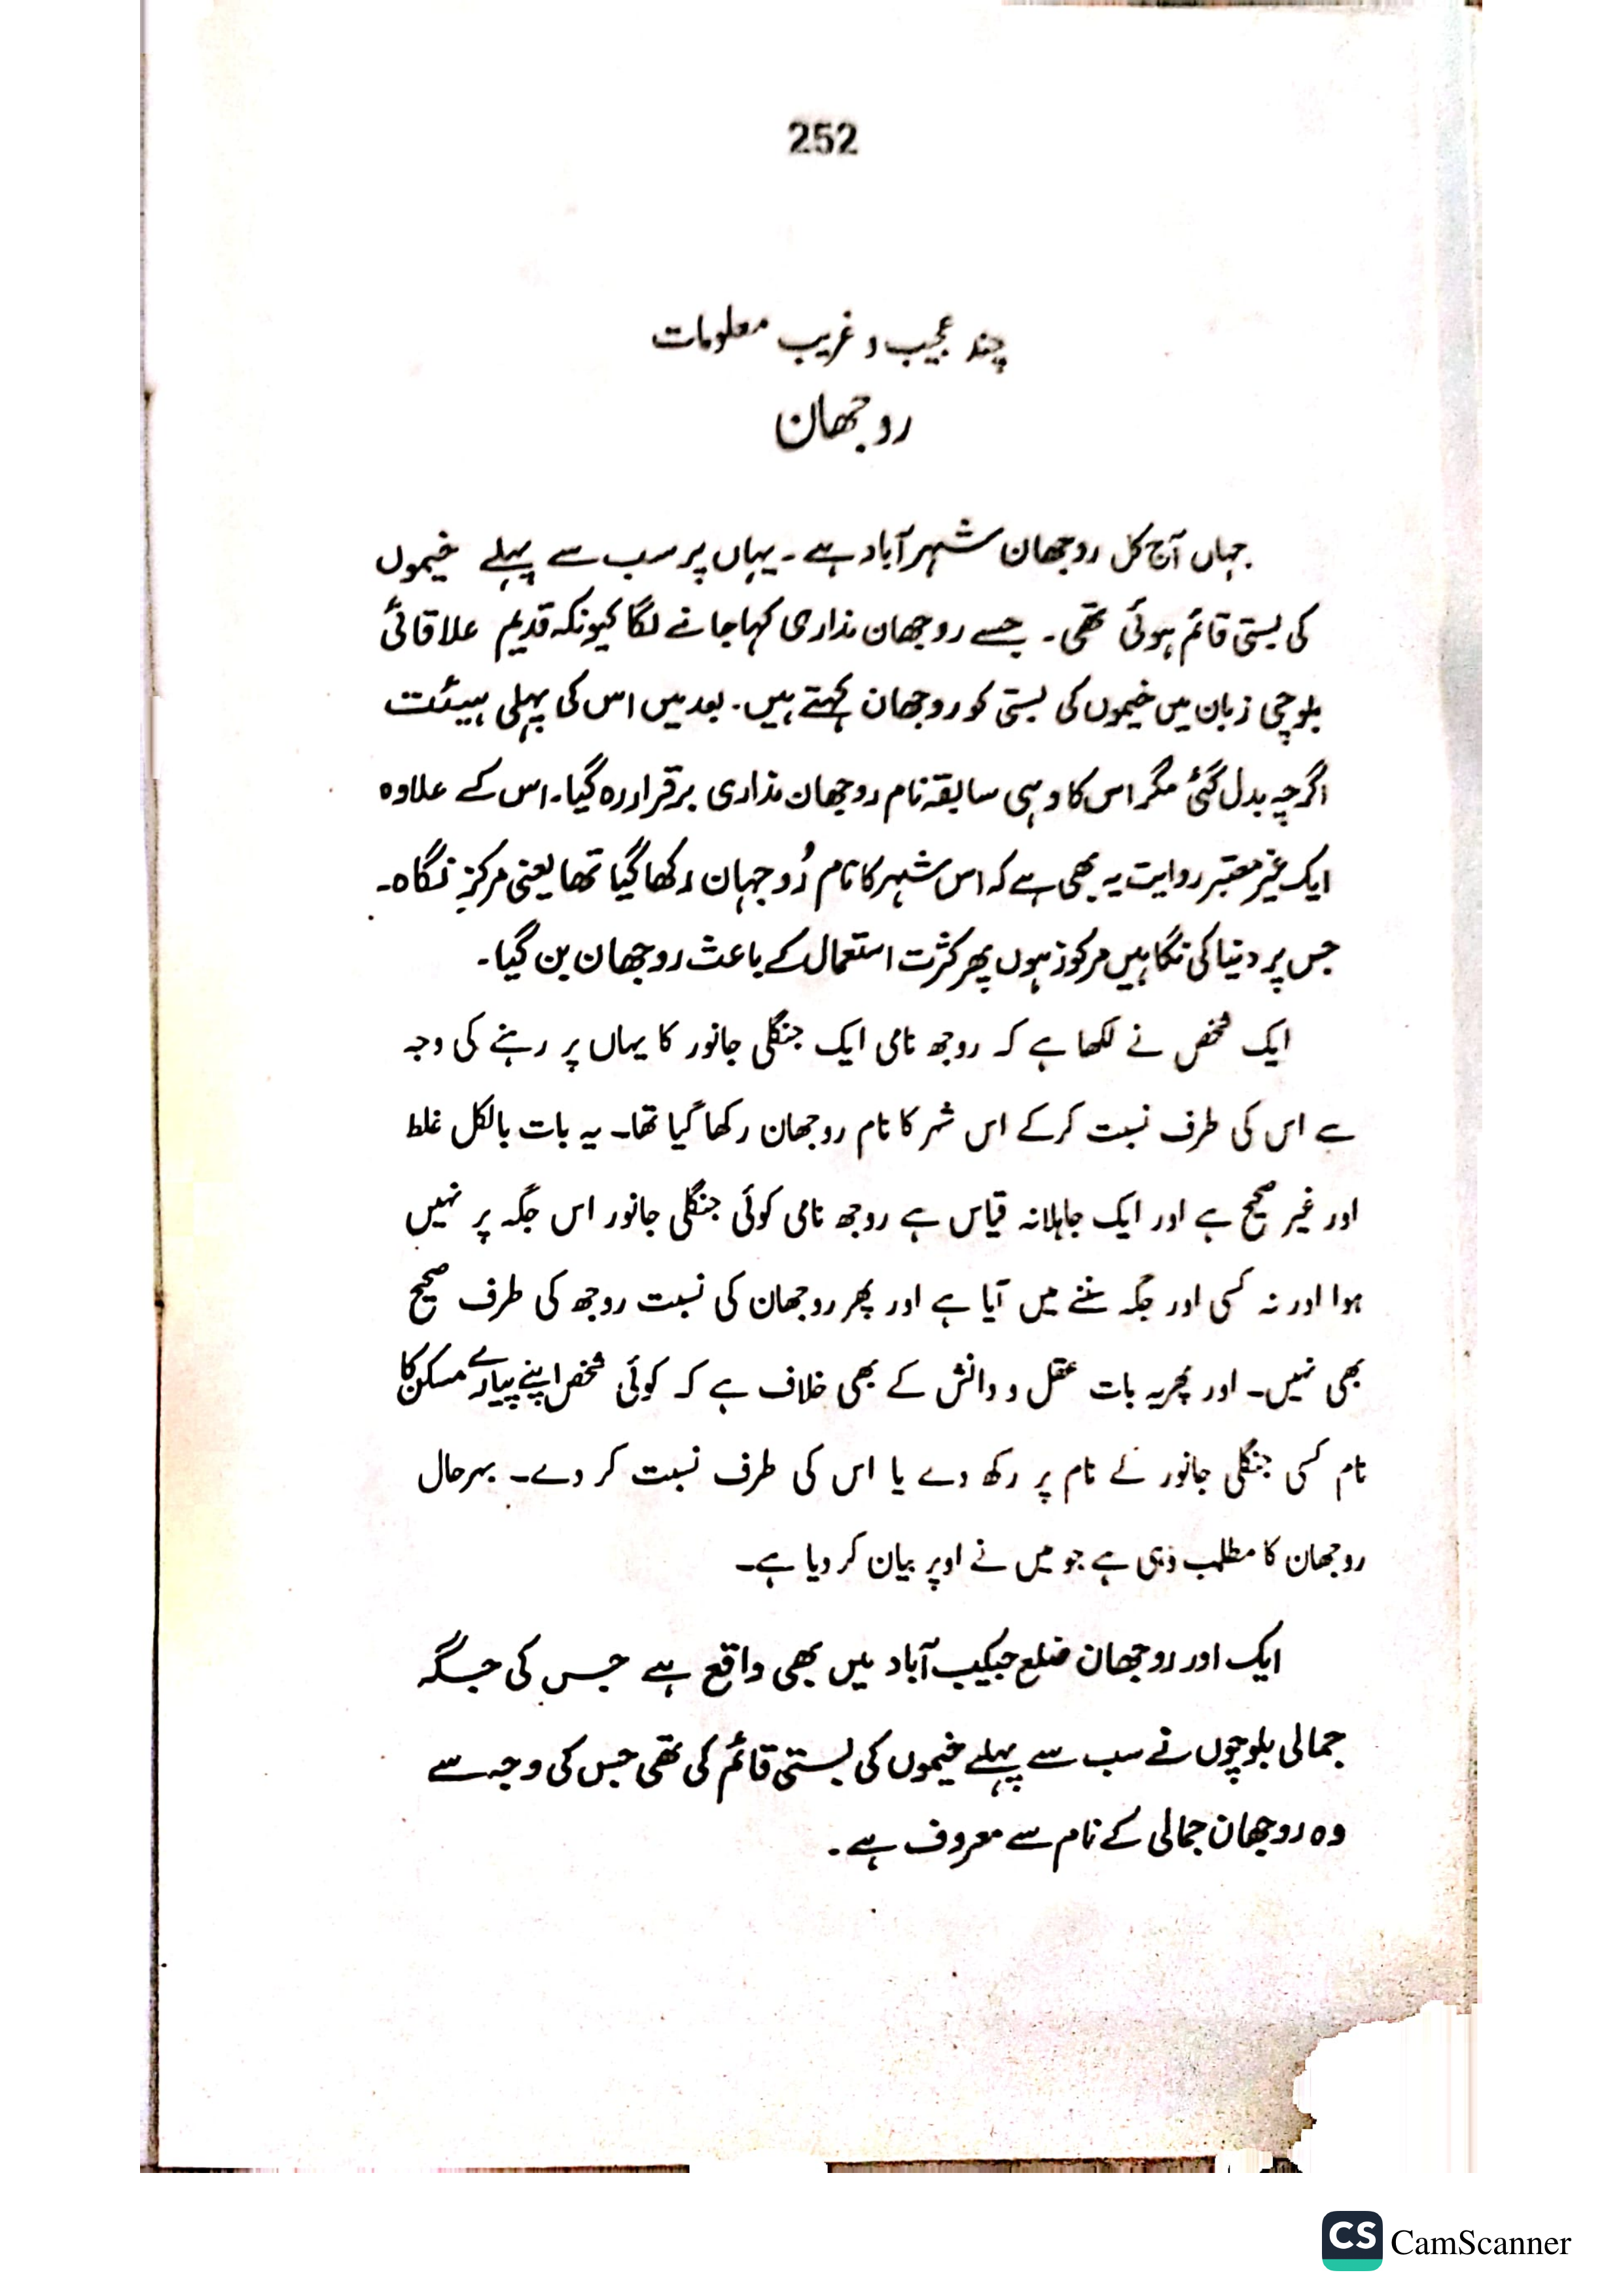 252
چند عجیب و غریب معلومات
روجھان
جہاں آج کل روجھان شہر آباد ہے ۔ یہاں پر سب سے پہلے خیموں
کی بستی قائم ہوئی تھی ۔ جسے روجھان مذاری کہا جانے لگا کیونکہ قدیم علاقائی
بلوچی زبان میں خیموں کی بستی کو روجھان کہتے ہیں ۔ بعد میں اس کی پہلی ہیئت
اگرچہ بدل گئی مگر اس کا وہی سابقہ نام روجھان مذاری برقرار رہ گیا ۔ اس کے علاوہ
ایک غیر معتبر روایت یہ بھی ہے کہ اس شہر کا نام رُوجہان رکھا گیا تھا یعنی مرکزِ نگاہ ۔
جس پر دنیا کی نگاہیں مرکوز ہوں پھر کثرت استعمال کے باعث روجھان بن گیا ۔
ایک شخص نے لکھا ہے کہ روجھ نامی ایک جنگلی جانور کا یہاں پر رہنے کی وجہ
سے اس کی طرف نسبت کرکے اس شہر کا نام روجھان رکھا گیا تھا۔ یہ بات بالکل غلط
اور غیر صحیح ہے اور ایک جاہلانہ قیاس ہے روجھ نامی کوئی جنگلی جانور اس جگہ پر نہیں
ہوا اور نہ کسی اور جگہ سننے میں آیا ہے اور پھر روجھان کی نسبت روجھ کی طرف صحیح
بھی نہیں۔ اور پھر یہ بات عقل و دانش کے بھی خلاف ہے کہ کوئی شخص اپنے پیارے مسکن کا
نام کسی جنگلی جانور کے نام پر رکھ دے یا اس کی طرف نسبت کر دے۔ بہرحال
روجھان کا مطلب وہی ہے جو میں نے اوپر بیان کر دیا ہے۔
ایک اور روجھان ضلع جیکب آباد میں بھی واقع ہے جس کی جگہ
جمالی بلوچوں نے سب سے پہلے خیموں کی بستی قائم کی تھی جس کی وجہ سے
وہ روجھان جمالی کے نام سے معروف ہے ۔
CS CamScanner